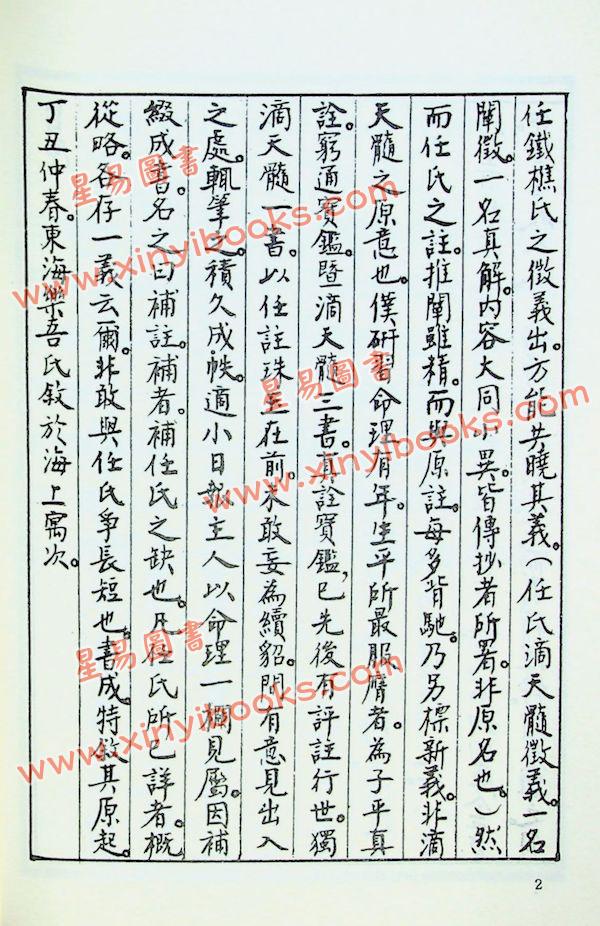 任鐵樵氏之徵義出。方能共曉其義。(任氏滴天髓徵義。一名
闡微。一名真解。內容大同小異。皆傳抄者所署。非原名也。)然
而任氏之註。推闡雖精。而與原註。每多背馳。乃另標新義。非滴
天髓之原意也。僕研習命理有年。生平所最服膺者。為子平真
詮。窮通寶鑑。暨滴天髓三書。真詮寶鑑，已先後有評註行世。獨
滴天髓一書。以任註珠玉在前。未敢妄為續貂。間有意見出入
之處。輒筆之。積久成帙。適小日報主人以命理一欄見屬。因補
綴成書。名之曰補註。補者。補任氏之缺也。凡任氏所已詳者。概
從略。各存一義云爾。非敢與任氏爭長短也。書成。特敘其原起。
丁丑仲春。東海樂吾氏敘於海上寓次。
2
星易圖書
www.xinyibooks.com
星易圖書
www.xinyibooks.com
星易圖書
www.xinyibooks.com
星易圖書
www.xinyibooks.com